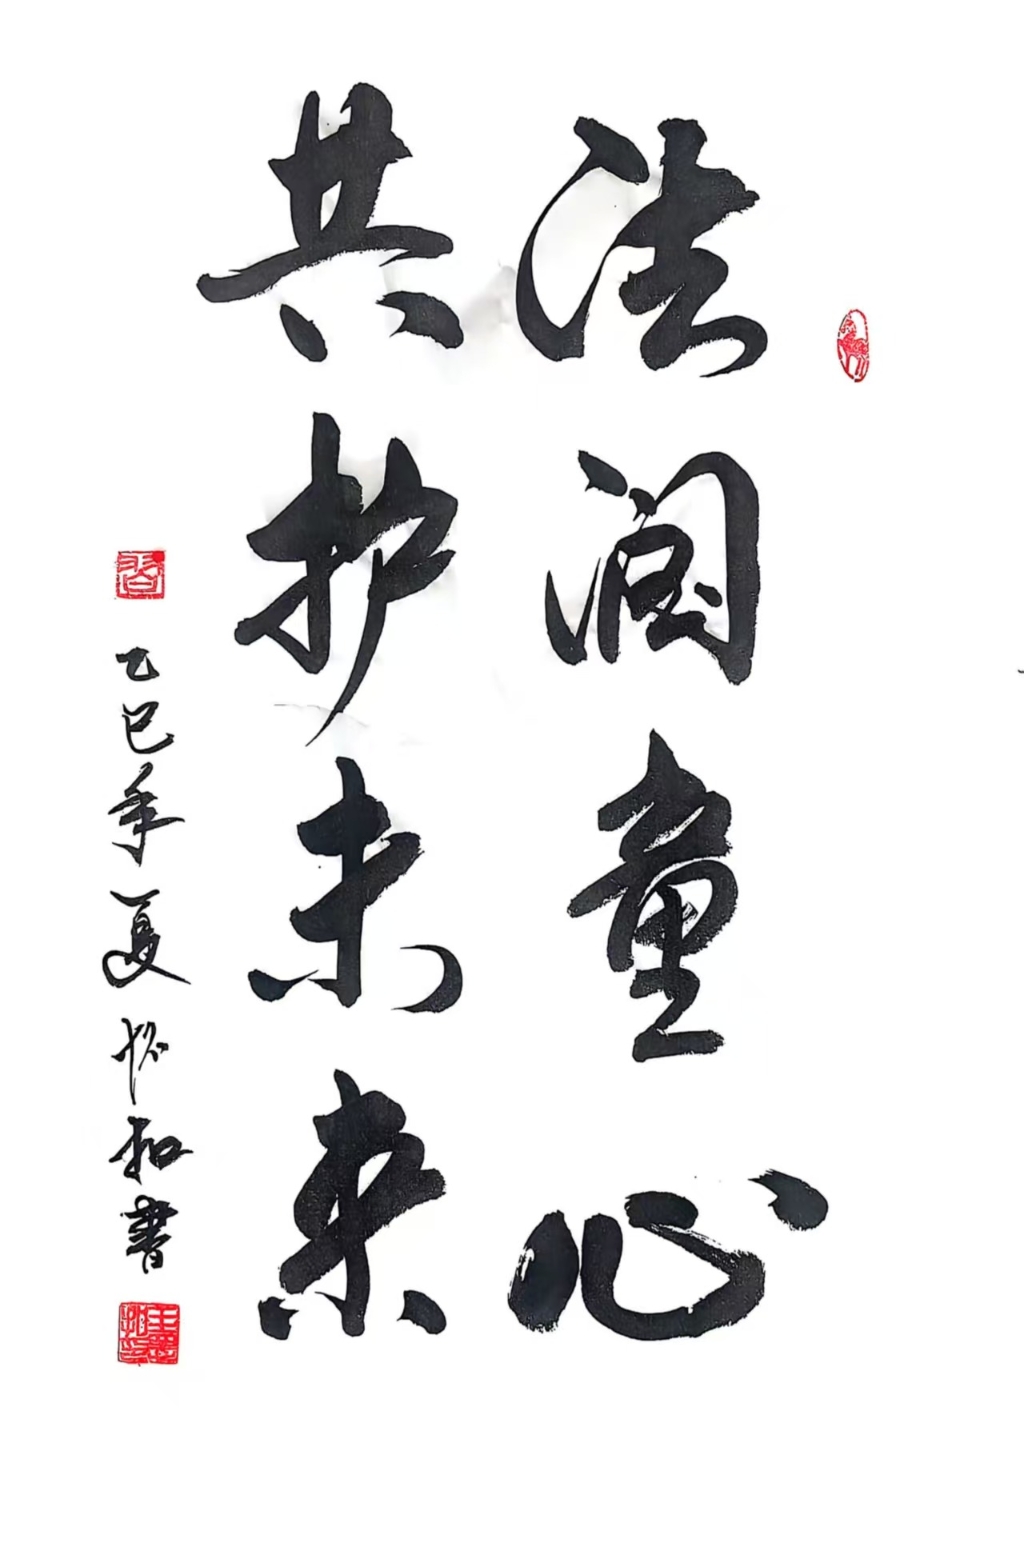 法润童心
共护未来
乙巳年夏怀和書